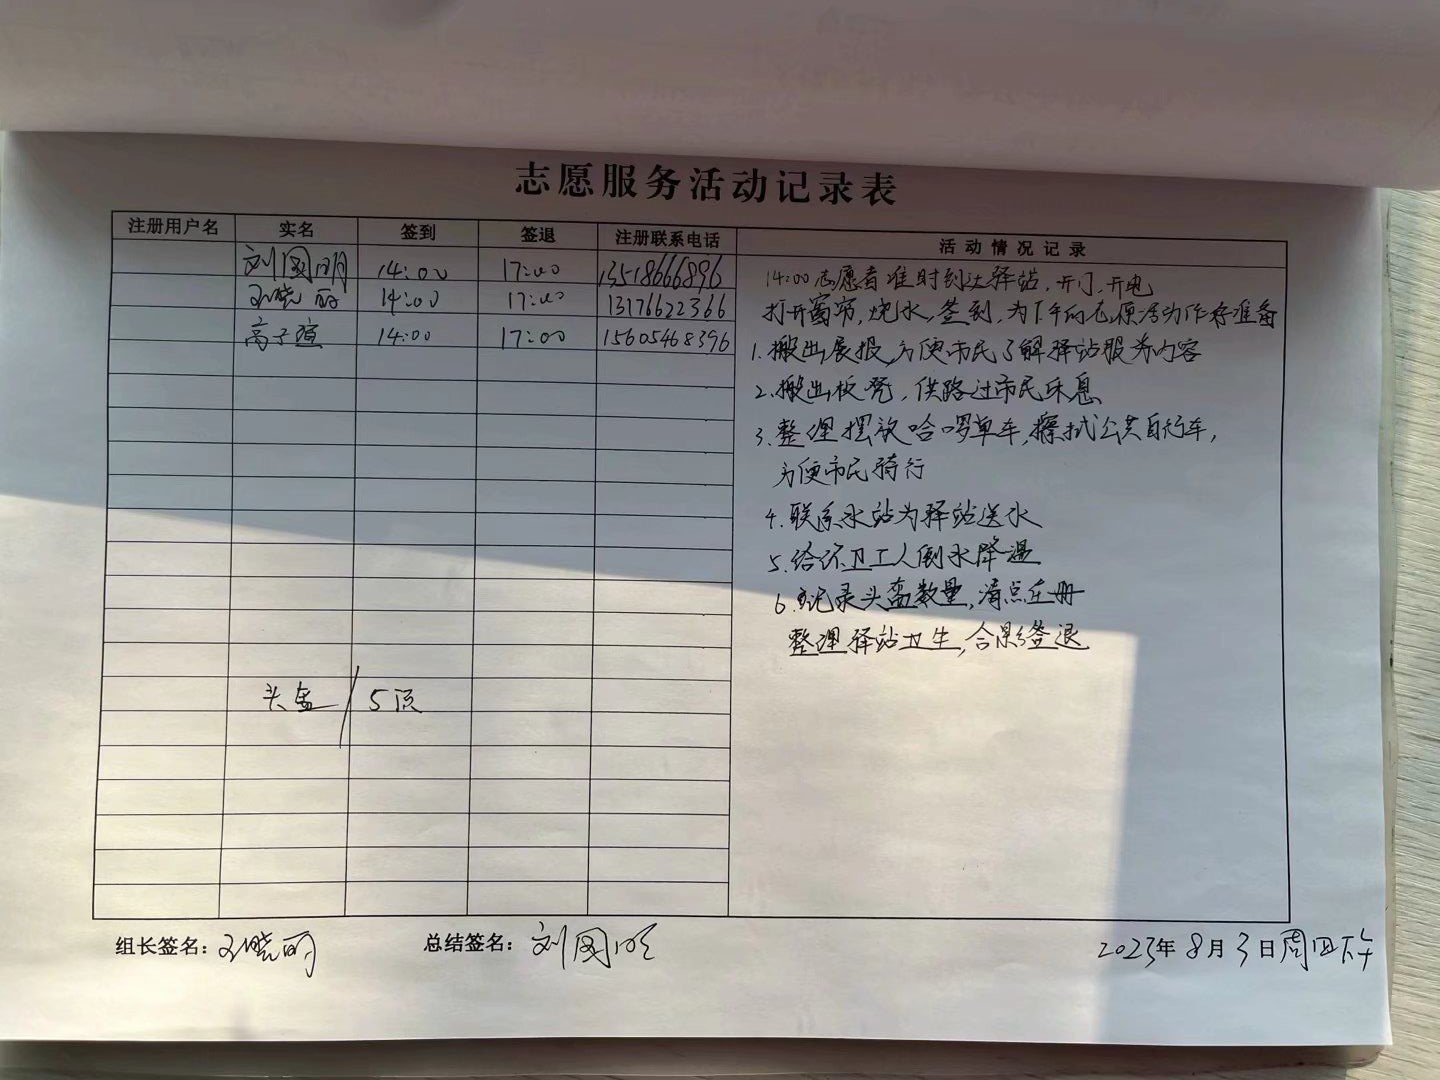 志愿服务活动记录表
注册用户名 实名 签到 签退 注册联系电话 活动情况记录
刘国明 14:00 17:00 13518666896
王晓丽 14:00 17:00 13176622366
高子瑄 14:00 17:00 15605468396
14:00志愿者准时到达驿站,开门、开电
打开窗帘,烧水,签到,为下午的志愿活动作好准备
1.搬出展报,方便市民了解驿站服务内容
2.搬出板凳,供路过市民乐息
3.整理摆放哈啰单车,擦拭公共自行车,
方便市民骑行
4.联系水站为驿站送水
5.给环卫工人倒水降温
6.记录头盔数量,清点在册
整理驿站卫生,合影签退
头盔/5顶
组长签名: 总结签名:刘国明
2023年8月3日周四下午